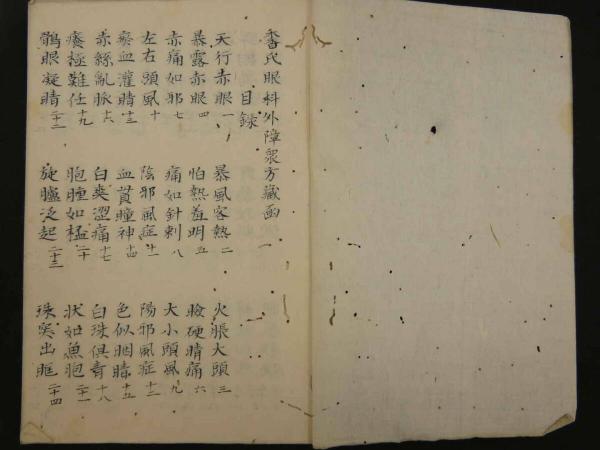 李氏眼科外障眾方藏函一
目録
天行赤眼一 暴風客熱二 火脹大頭三
暴露赤眼四 怕熱羞明五 瞼硬睛痛六
赤痛如邪七 痛如針刺八 大小頭風九
左右頭風十 陰邪風症十一 陽邪風症十二
瘀血灌睛十三 血貫瞳神十四 色似胭脂十五
赤絲亂脈十六 白眼澀痛十七 白珠俱青十八
癢極難任十九 胞腫如桃二十 狀如魚胞二十一
鶻眼凝睛二十二 旋臚泛起二十三 珠突出眶二十四